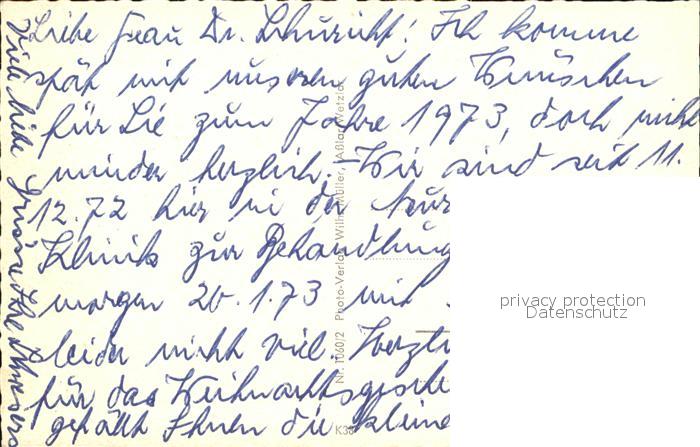 Liebe Frau Dr. Schuricht! Ich komme
spät mit unseren guten Wünschen
für Sie zum Jahre 1973, doch nicht
minder herzlich. Wir sind seit 11.
12.72 hier in der
Klinik zur Behandlung
morgen 20.1.73 und
leider nicht viel. Herzli
für das Weihnachtsgesche
gefällt Ihnen die kleine
Viele liebe Grüsse Ihre
Nr. 1060/2 Photo-Verlag Wilh. Müller, Aßlar/Wetzlar
privacy protection
Datenschutz